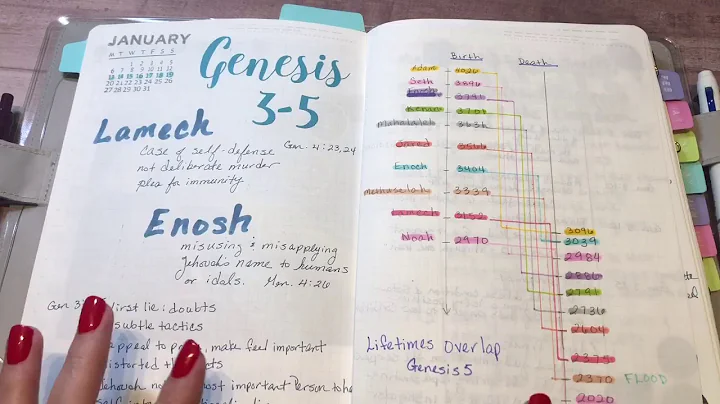 JANUARY
M T W T F S S
1 2 3 4 5
6 7 8 9 10 11 12
13 14 15 16 17 18 19
20 21 22 23 24 25 26
27 28 29 30 31
Genesis
3-5
Lamech
case of self-defense Gen. 4:23,24
not deliberate murder
plea for immunity
Enosh
misusing & misapplying
Jehovah's name to humans
or idols. Gen. 4:26
Gen 3: first lie: doubts
subtle tactics
appeal to, make feel important
distorted
Jehovah most important Person to
Birth Death
Adam 4026
Seth 3896
Enosh 3791
Kenan 3701
Mahalaleh 3631
Jared 3566
Enoch 3404
Methuselah 3339
Lamech 3152
Noah 2970
3096
3039
2984
2886
2791
2736
2604
2375
2370 FLOOD
2020
Lifetimes Overlap
Genesis 5